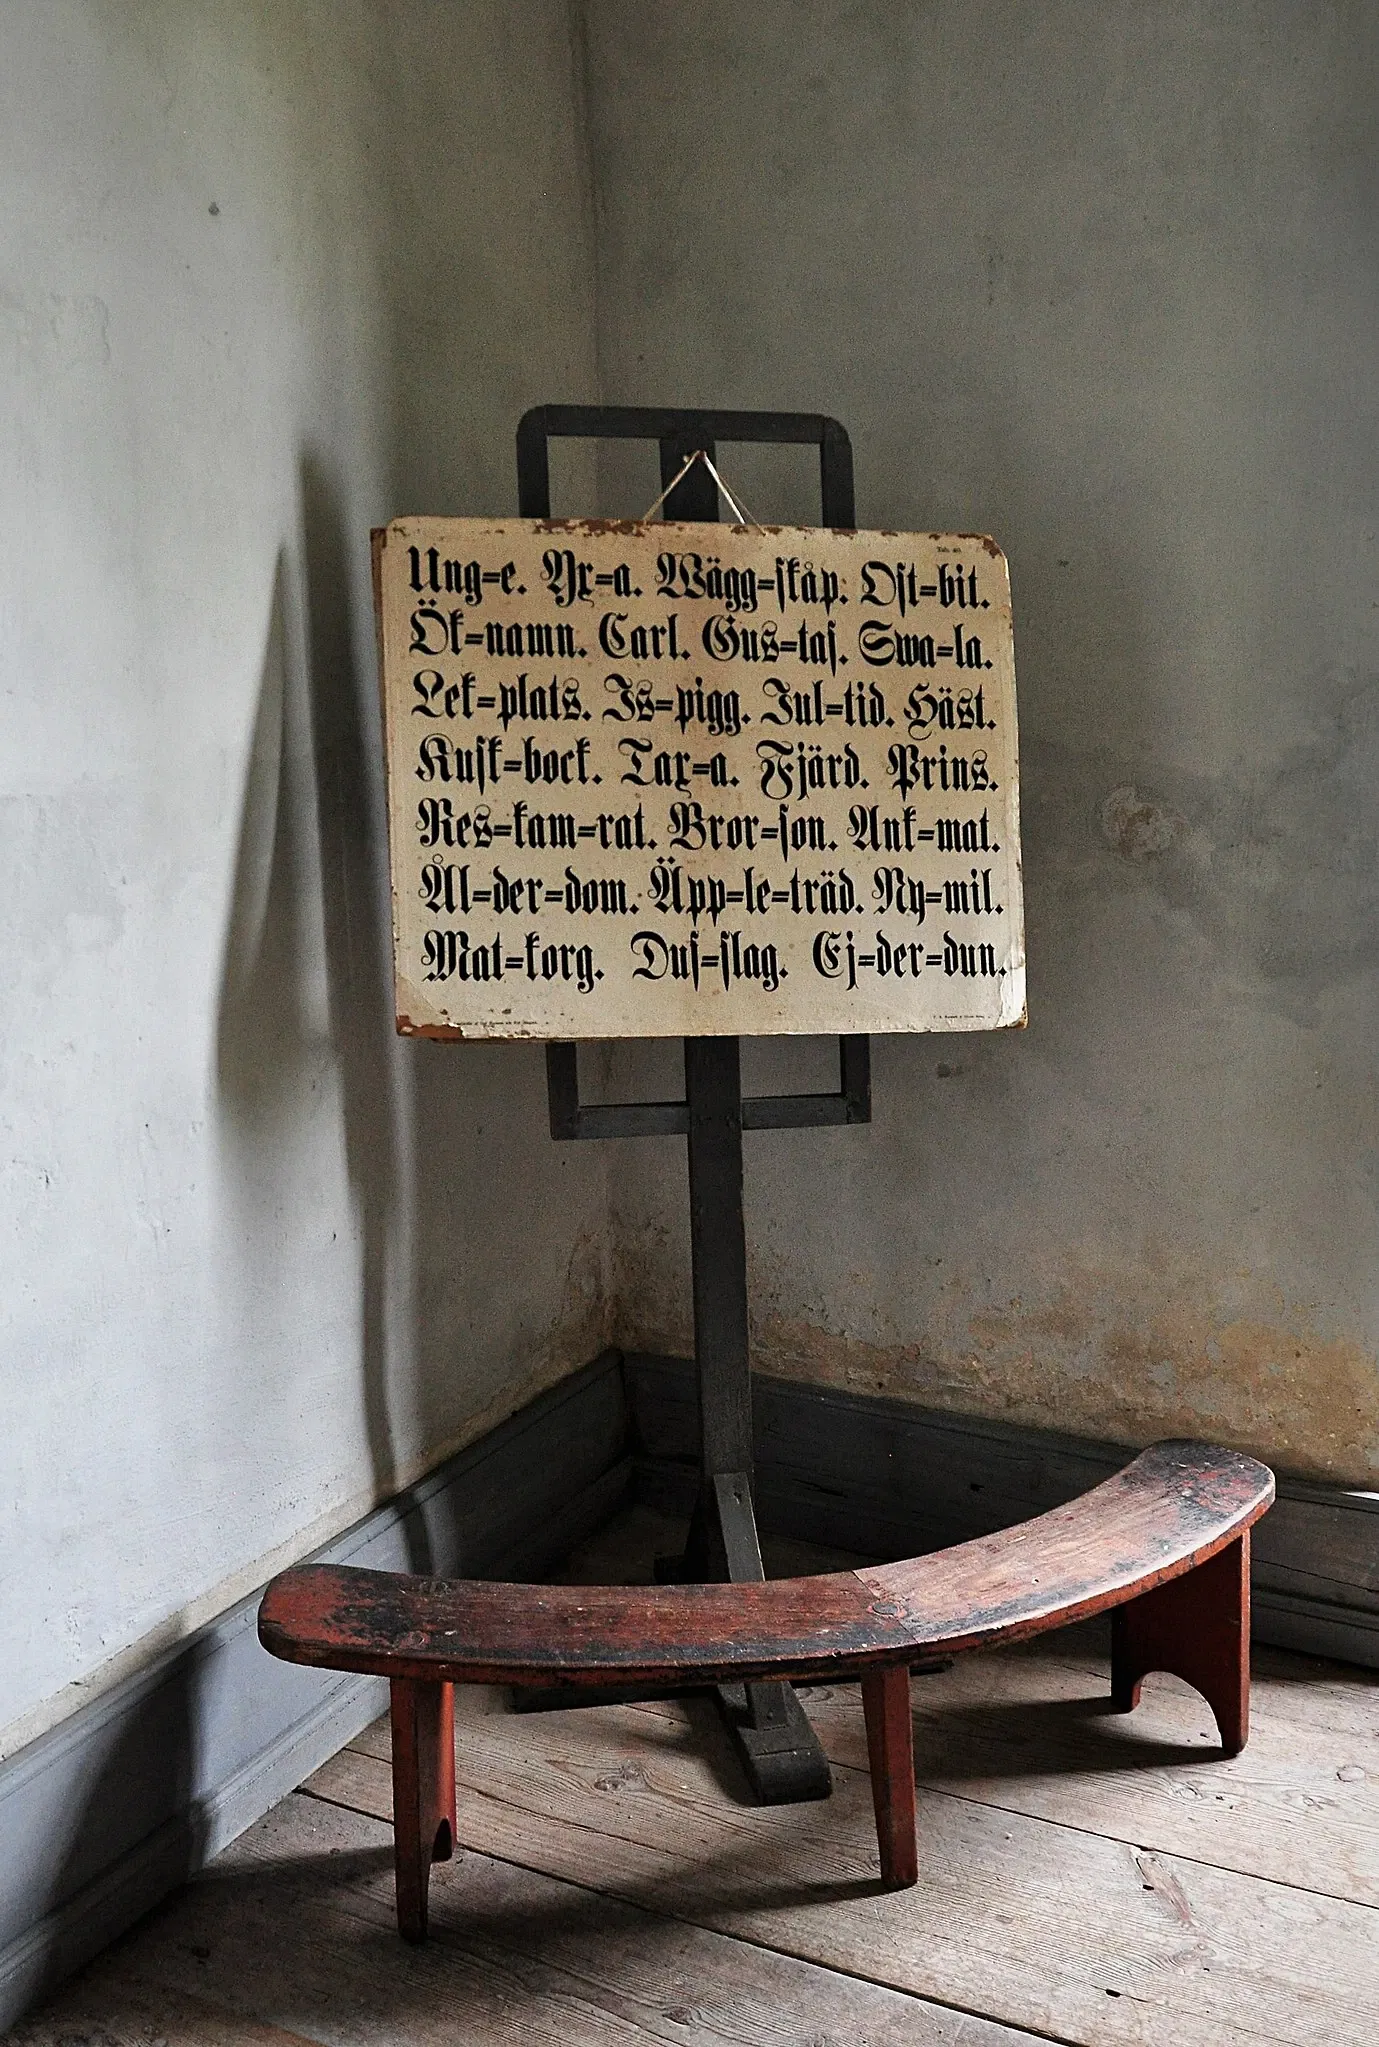 Tab. 40.
Ung=e. Yx=a. Wägg=ſkåp. Oſt=bit.
Ök=namn. Carl. Gus=taf. Swa=la.
Lek=plats. Is=pigg. Jul=tid. Häst.
Kuſk=bock. Tax=a. Fjärd. Prins.
Res=kam=rat. Bror=ſon. Ank=mat.
Ål=der=dom. Äpp=le=träd. Ny=mil.
Mat=korg. Duf=ſlag. Ej=der=dun.